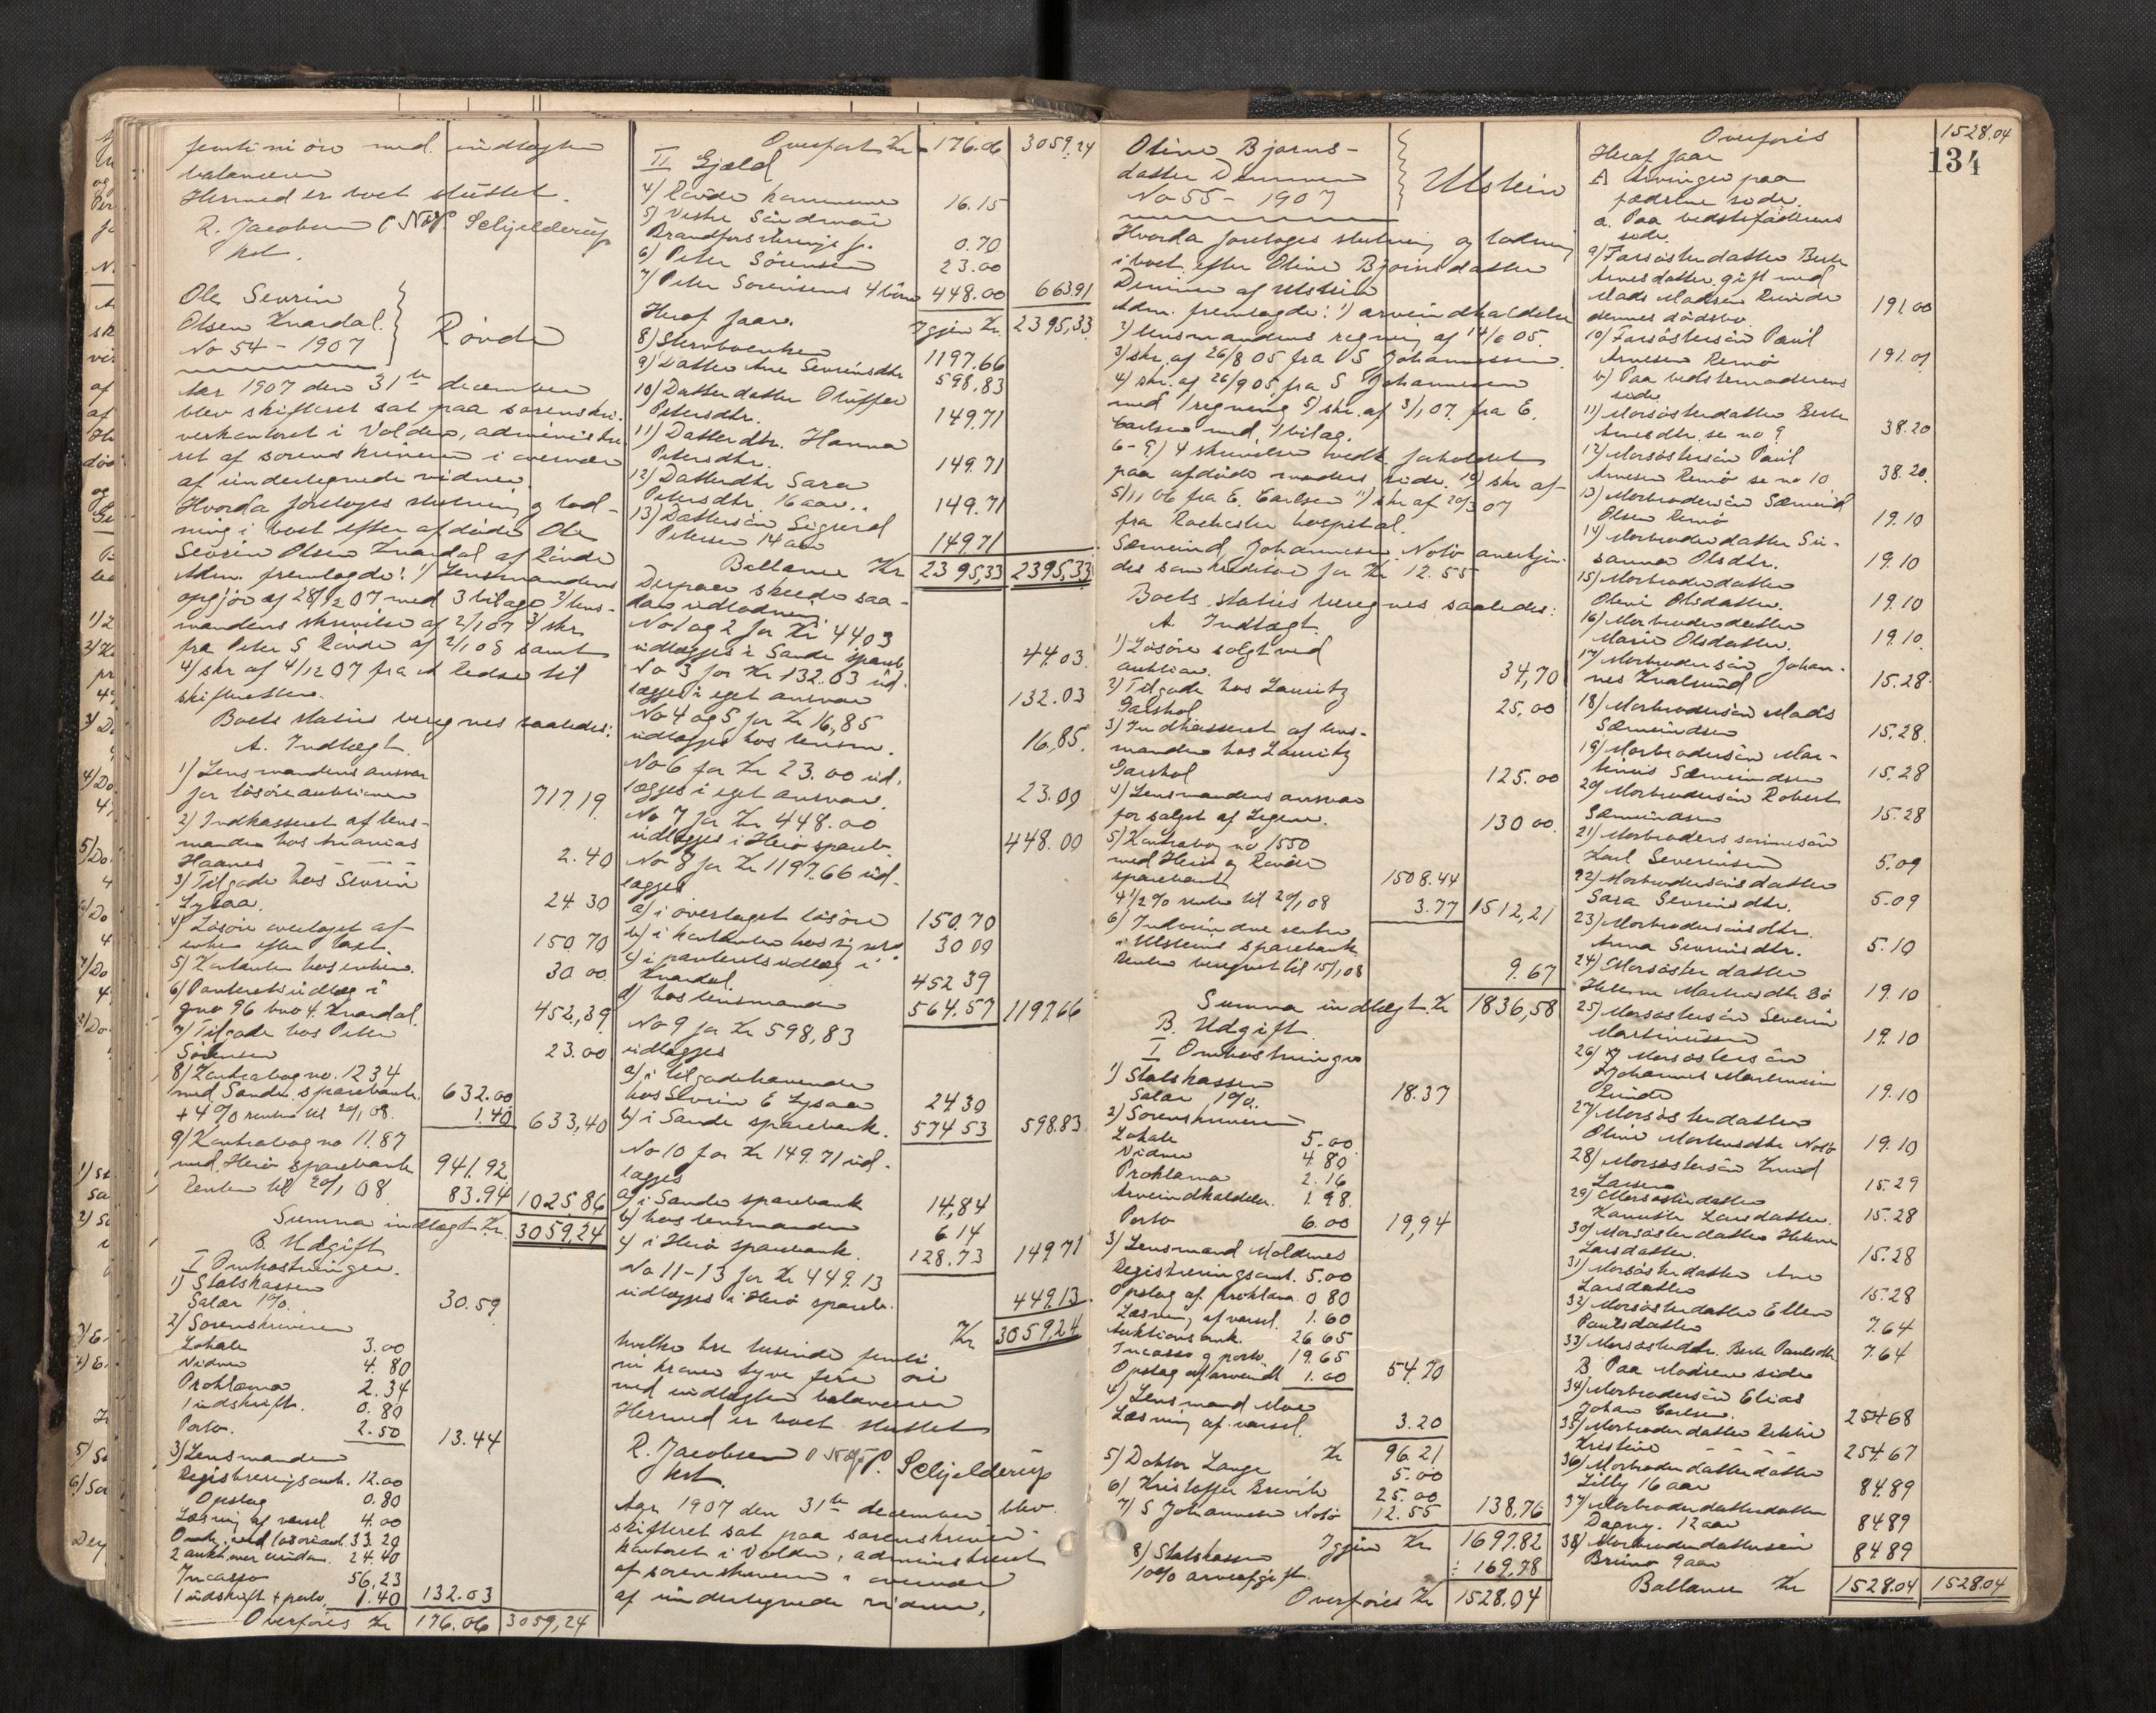 femti ni öre med indtægten
balancerer
Hermed er boet sluttet.
R. Jacobsen Schjelderup
kst.
Ole Sevrin
Olsen Knardal.
No 54 - 1907
Rövde
Aar 1907 den 31te december
blev skifteret sat paa sorenskri-
verkontoret i Volden, administre-
ret af sorenskriveren i overvær
af undertegnede vidner.
Hvorda foretoges slutning og lod-
ning i boet efter afdöde Ole
Sevrin Olsen Knardal af Rövde
Adm. fremlagde: 1) Lensmandens
opgjör af 28/12 07 med 3 bilage 2) lens-
mandens skrivelse af 2/1 07 3) skr
fra Peter S Rövde af 2/1 08 samt
4) skr af 4/12 07 fra
skifteretten.
Boets status beregnes saaledes:
A. Indtægt.
1) Lensmandens ansvar
for lösöreauktionen 717.19
2) Indkasseret af lens-
manden hos Ananias
Haanes 2.40
3) Tilgode hos Sevrin
Lysaa. 24.30
4) Lösöre overtaget af
enken efter taxt. 150 70
5) Kontanter hos enken. 30.00
6) Panteretsudlæg i
gno 96 bno 4. Knardal. 452,39
7) Tilgode hos Peter
Sörensen 23.00
8) Kontrabog no. 1234
med Sande sparebank. 632.00
+ 4% renter til 20/1 08. 1.40 633,40
9) Kontrabog no 1187
med Herö sparebank 941.92
Renter til 20/1 08 83.94 1025.86
Summa indtægt Kr. 3059,24
B. Udgift
I Omkostninger.
1) Statskassen
Salær 1%. 30.59
2) Sorenskriveren
Lokale 3.00
Vidner 4.80
Proklama 2.34
1 udskrift. 0.80
Porto. 2.50 13.44
3) Lensmanden
Registreringsauk. 12.00
Opslag 0.80
Læsning af varsel 4.00
Omk. ved lösöreauk. 33.20
2 aukt. over eiendom. 24.40
Incasso 56,23
1 udskrift + porto, 1.40 132.03
Overföres Kr 176.06 3059,24
Overfört Kr 176.06 3059.24
II Gjæld
4) Rövde kommune 16.15
5) Vestre Söndmör
Brandforsikrings f. 0.70
6) Peter Sörensen 23.00
7) Peter Sorensens 4 börn 448.00 663.91
Igjen Kr. 2395,33
Heraf faar.
8) Stervboenken 1197.66
9) Datter Ane Sevrinsdtr 598.83
10) Datterdatter Oluffa
Petersdtr. 149.71
11) Datterdtr. Hanna
Petersdtr. 149.71
12) Datterdtr Sara
Petersdtr. 16 aar.. 149.71
13) Dattersön Sigurd
Petersen 14 aar 149.71
Ballance Kr 2395,33 2395.33
Derpaa skede saa-
dan udlodning
No 1 og 2 for Kr 44.03
udlægges i Sande spareb. 44.03.
No 3 for Kr 132.03 ud-
lægges i eget ansvar 132.03
No 4 og 5 for Kr 16,85
udlægges hos lensm. 16,85.
No 6 for Kr 23.00 ud.
lægges i eget ansvar. 23.00
No 7 for Kr 448.00
udlægges i Herö spareb. 448.00
No 8 for Kr 1197.66 ud-
lægges
a) i overtaget lösöre 150.70
b) i kontanter hos sig selv 30 00
c) i panteretsudlæg i
Knardal. 452 39
d) hos lensmanden 564.57 1197.66
No 9 for Kr 598,83
udlægges
a) i tilgodehavende
hos Sevrin E Lysaa 24.30
b) i Sande sparebank. 574 53 598.83
No 10 for Kr 149.71 ud-
lægges
a) i Sande sparebank 14,84
b) hos lensmanden 6.14
c) i Herö sparebank. 128.73 149.71
No 11-13 for Kr 449.13
udlægges i Herö spareb. 449.13
Kr 3059.24
hvilke tre tusinde femti
ni kroner tyve fire öre
med indtægten balancerer
Hermed er boet sluttet
R. Jacobsen Schjelderup
kst.
Aar 1907 den 31te december blev
skifteret sat paa sorenskriver-
kontoret i Volden, administreret
af sorenskriveren i overvær
af undertegnede vidner,
134
Oline Bjorns-
datter Dimmen
No 55 - 1907
Ulstein
Hvorda foretoges slutning og lodning
i boet efter Oline Bjornsdatter
Dimmen af Ulstein
Adm. fremlagde: 1) arveindkaldelse
2) lensmandens regning af 14/6 05.
3) skr. af 26/8 05 fra S Johannesen
4) skr. af 26/9 05 fra S Johannesen
med 1 regning 5) skr. af 3/1 07. fra E.
Carlsen med 1 bilag.
6-9) 4 skrivelser vedk forholdet
paa afdöde moders side. 10) skr af
5/11 06 fra E. Carlsen 11) skr af 20/3 07
fra Rochester hospital.
Sæmund Johannesen Notö anerkjen-
des som kreditor for Kr 12.55
Boets status beregnes saaledes:
A. Indtægt
1) Lösöre solgt ved
auktion. 34,70
2) Tilgode hos Lauritz
Garshol 25.00
3) Indkasseret af lens-
manden hos Lauritz
Garshol 125.00
4) Lensmandens ansvar
for salget af 130 00.
5) Kontrabog no 1550
med Herö og Rövde
sparebank 1508.44
4 1/2 % renter til 20/1 08 3.77 1512,21
6) Indvundne renter
i Ulsteins sparebank
Renter beregnet til 15/1 08 9.67
Summa indtægt Kr 1836,58
B. Udgift
I Omkostninger
1) Statskassen
Salær 1%. 18.37
2) Sorenskriveren
Lokale 5.00
Vidner 4.80
Proklama 2.16
Arveindkaldelse. 1.98.
Porto 6.00 19,94
3) Lensmand Moldenes
Registreringsauk. 5.00
Opslag af proklama. 0 80
Læsning af varsel. 1.60
Auktions omk. 26 65
Incasso g porto. 19.65
Opslag af arveindk 1.00 54.70
4) Lensmand Moe
Læsning af varsel. 3.20
Kr 96.21
5) Doktor Lange 5.00
6) Kristoffer Brevik 25.00
7) S Johannesen Notö 12.55 138,76
Igjen Kr 1697.82
8) Statskassen
10% arveafgift. 169.78
Overföres Kr 1528.04
Overföres 1528.04
Heraf faar
A Arvinger paa
fædrene side.
a. Paa bedstefaderens
side.
9) Farsösterdatter Berte
Arnesdatter gift med
Mads Madsen Runde
dennes dödsbo 191.00
10) Farsöstersön Paul
Arnesen Remö 191.01
b) Paa bedstemoderens
side.
11) Morsösterdatter Berte
Arnesdtr. se no 9 38.20
12) Morsöstersön Paul
Arnesen Remö se no 10 38.20.
13) Morbrodersön Sæmund
Olsen Remö 19.10
14) Morbroderdatter Su-
sanna Olsdtr. 19.10
15) Morbroderdatter
Oline Olsdatter. 19.10
16) Morbroderdatter
Marie Olsdatter. 19.10.
17) Morbrodersön Johan-
nes Kvalsund 15.28.
18) Morbrodersön Mads
Sæmundsen 15.28.
19) Morbrodersön Mar-
tinus Sæmundsen 15.28
20) Morbrodersön Robert
Sæmundsen 15.28
21) Morbroders sönnesön
Karl Severinsen 5.09
22) Morbrodersönsdatter
Sara Sevrinsdtr. 5.09
23) Morbrodersönsdtr.
Anna Sevrinsdtr. 5.10
24) Morsösterdatter
Martinsdtr Bö 19.10
25) Morsöstersön Severin
Martinussen 19.10
26) Morsöstersön
Johannes Martinsen
Runde 19.10
27) Morsösterdatter
Oline Mortensdtr Notö 19.10
28) Morsöstersön Knud
Larsen 15.29
29) Morsösterdatter
Larsdatter. 15.28
30) Morsösterdatter Helene
Larsdatter. 15.28
31) Morsösterdatter Ane
Larsdatter 15.28
32) Morsösterdatter Ellen
Paulsdatter 7.64
33) Morsösterdtr. Berte Paulsdtr 7.64
B Paa Modrene side
34) Morbrodersön Elias
Johan Carlsen. 254.68
35) Morbroderdatter
Kristine 254.67
36) Morbroderdatterdatter
Lilly 16 aar 84.89
37) Morbroderdatterdatter
Dagny. 12 aar 84 89
38) Morbroderdattersön
Bruno 9 aar 84.89
Ballance Kr 1528.04 1528.04